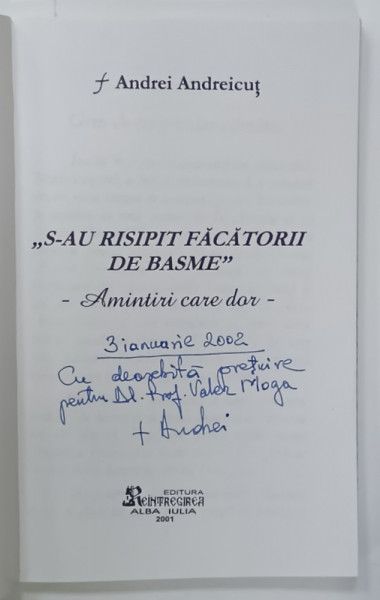 † Andrei Andreicuţ
„S-AU RISIPIT FĂCĂTORII
DE BASME”
- Amintiri care dor -
3 ianuarie 2002
Cu deosebită preţuire
pentru Dl. Prof. Valer Moga
† Andrei
EDITURA
REÎNTREGIREA
ALBA IULIA
2001